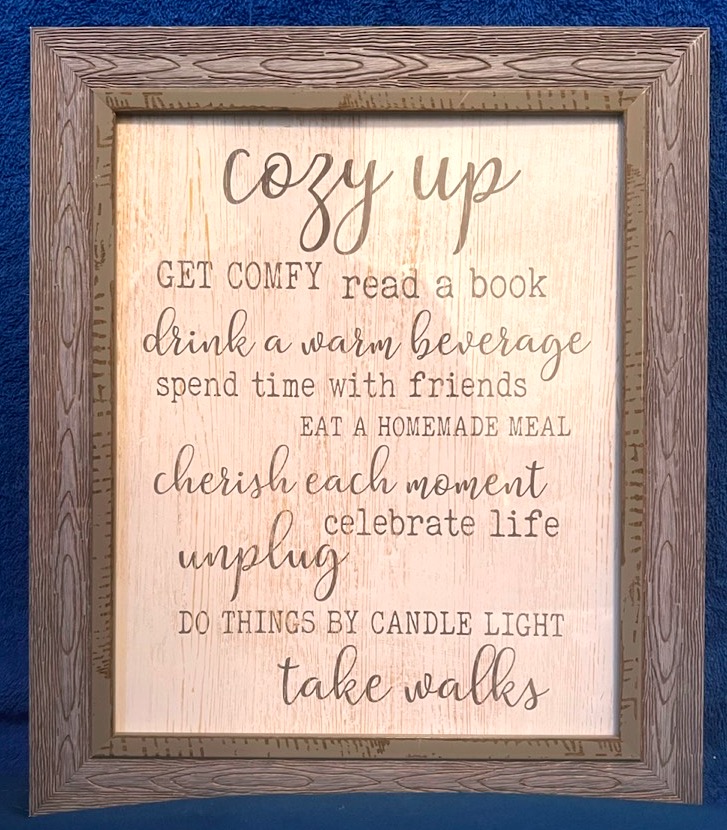 cozy up
GET COMFY read a book
drink a warm beverage
spend time with friends
EAT A HOMEMADE MEAL
cherish each moment
celebrate life
unplug
DO THINGS BY CANDLE LIGHT
take walks